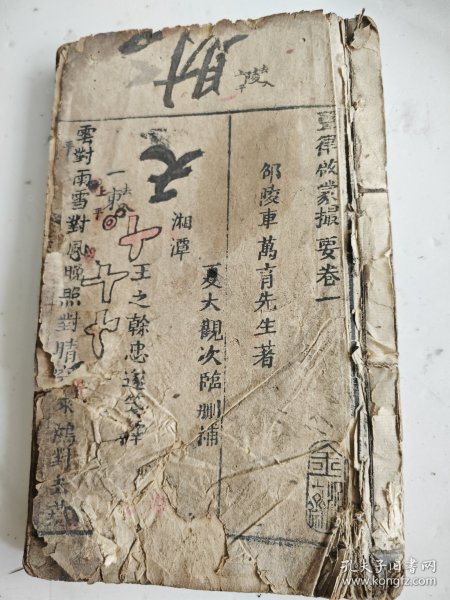 聲律啟蒙撮要卷一
邵陵車萬育先生著
夏大觀次臨刪補
湘潭
王之榦忠遂箋釋
一東
雲對雨雪對風晚照對晴空來鴻對去燕
財
天
孔夫子旧书网
www.kongfz.com